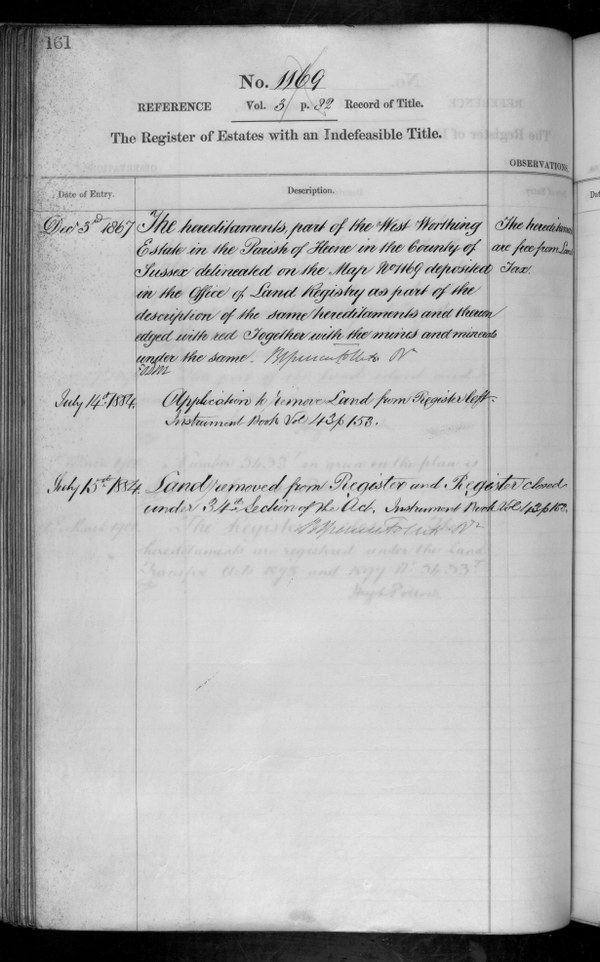 161
No. 1169
REFERENCE Vol. 3 p. 82 Record of Title.
The Register of Estates with an Indefeasible Title.
OBSERVATIONS
Date of Entry. Description.
Decr 3rd 1867 The hereditaments, part of the West Worthing
Estate in the Parish of Heene in the County of
Sussex delineated on the Map No 1169 deposited
in the Office of Land Registry as part of the
description of the same hereditaments and thereon
edged with red Together with the mines and minerals
under the same.
The hereditaments
are free from Land
Tax.
July 14th 1884. Application to remove Land from Register left
Instrument Book Vol 43 p 158.
July 15th 1884. Land removed from Register and Register closed
under 34th Section of the Act. Instrument Book Vol 43 p 158.
hereditaments are registered under the Land